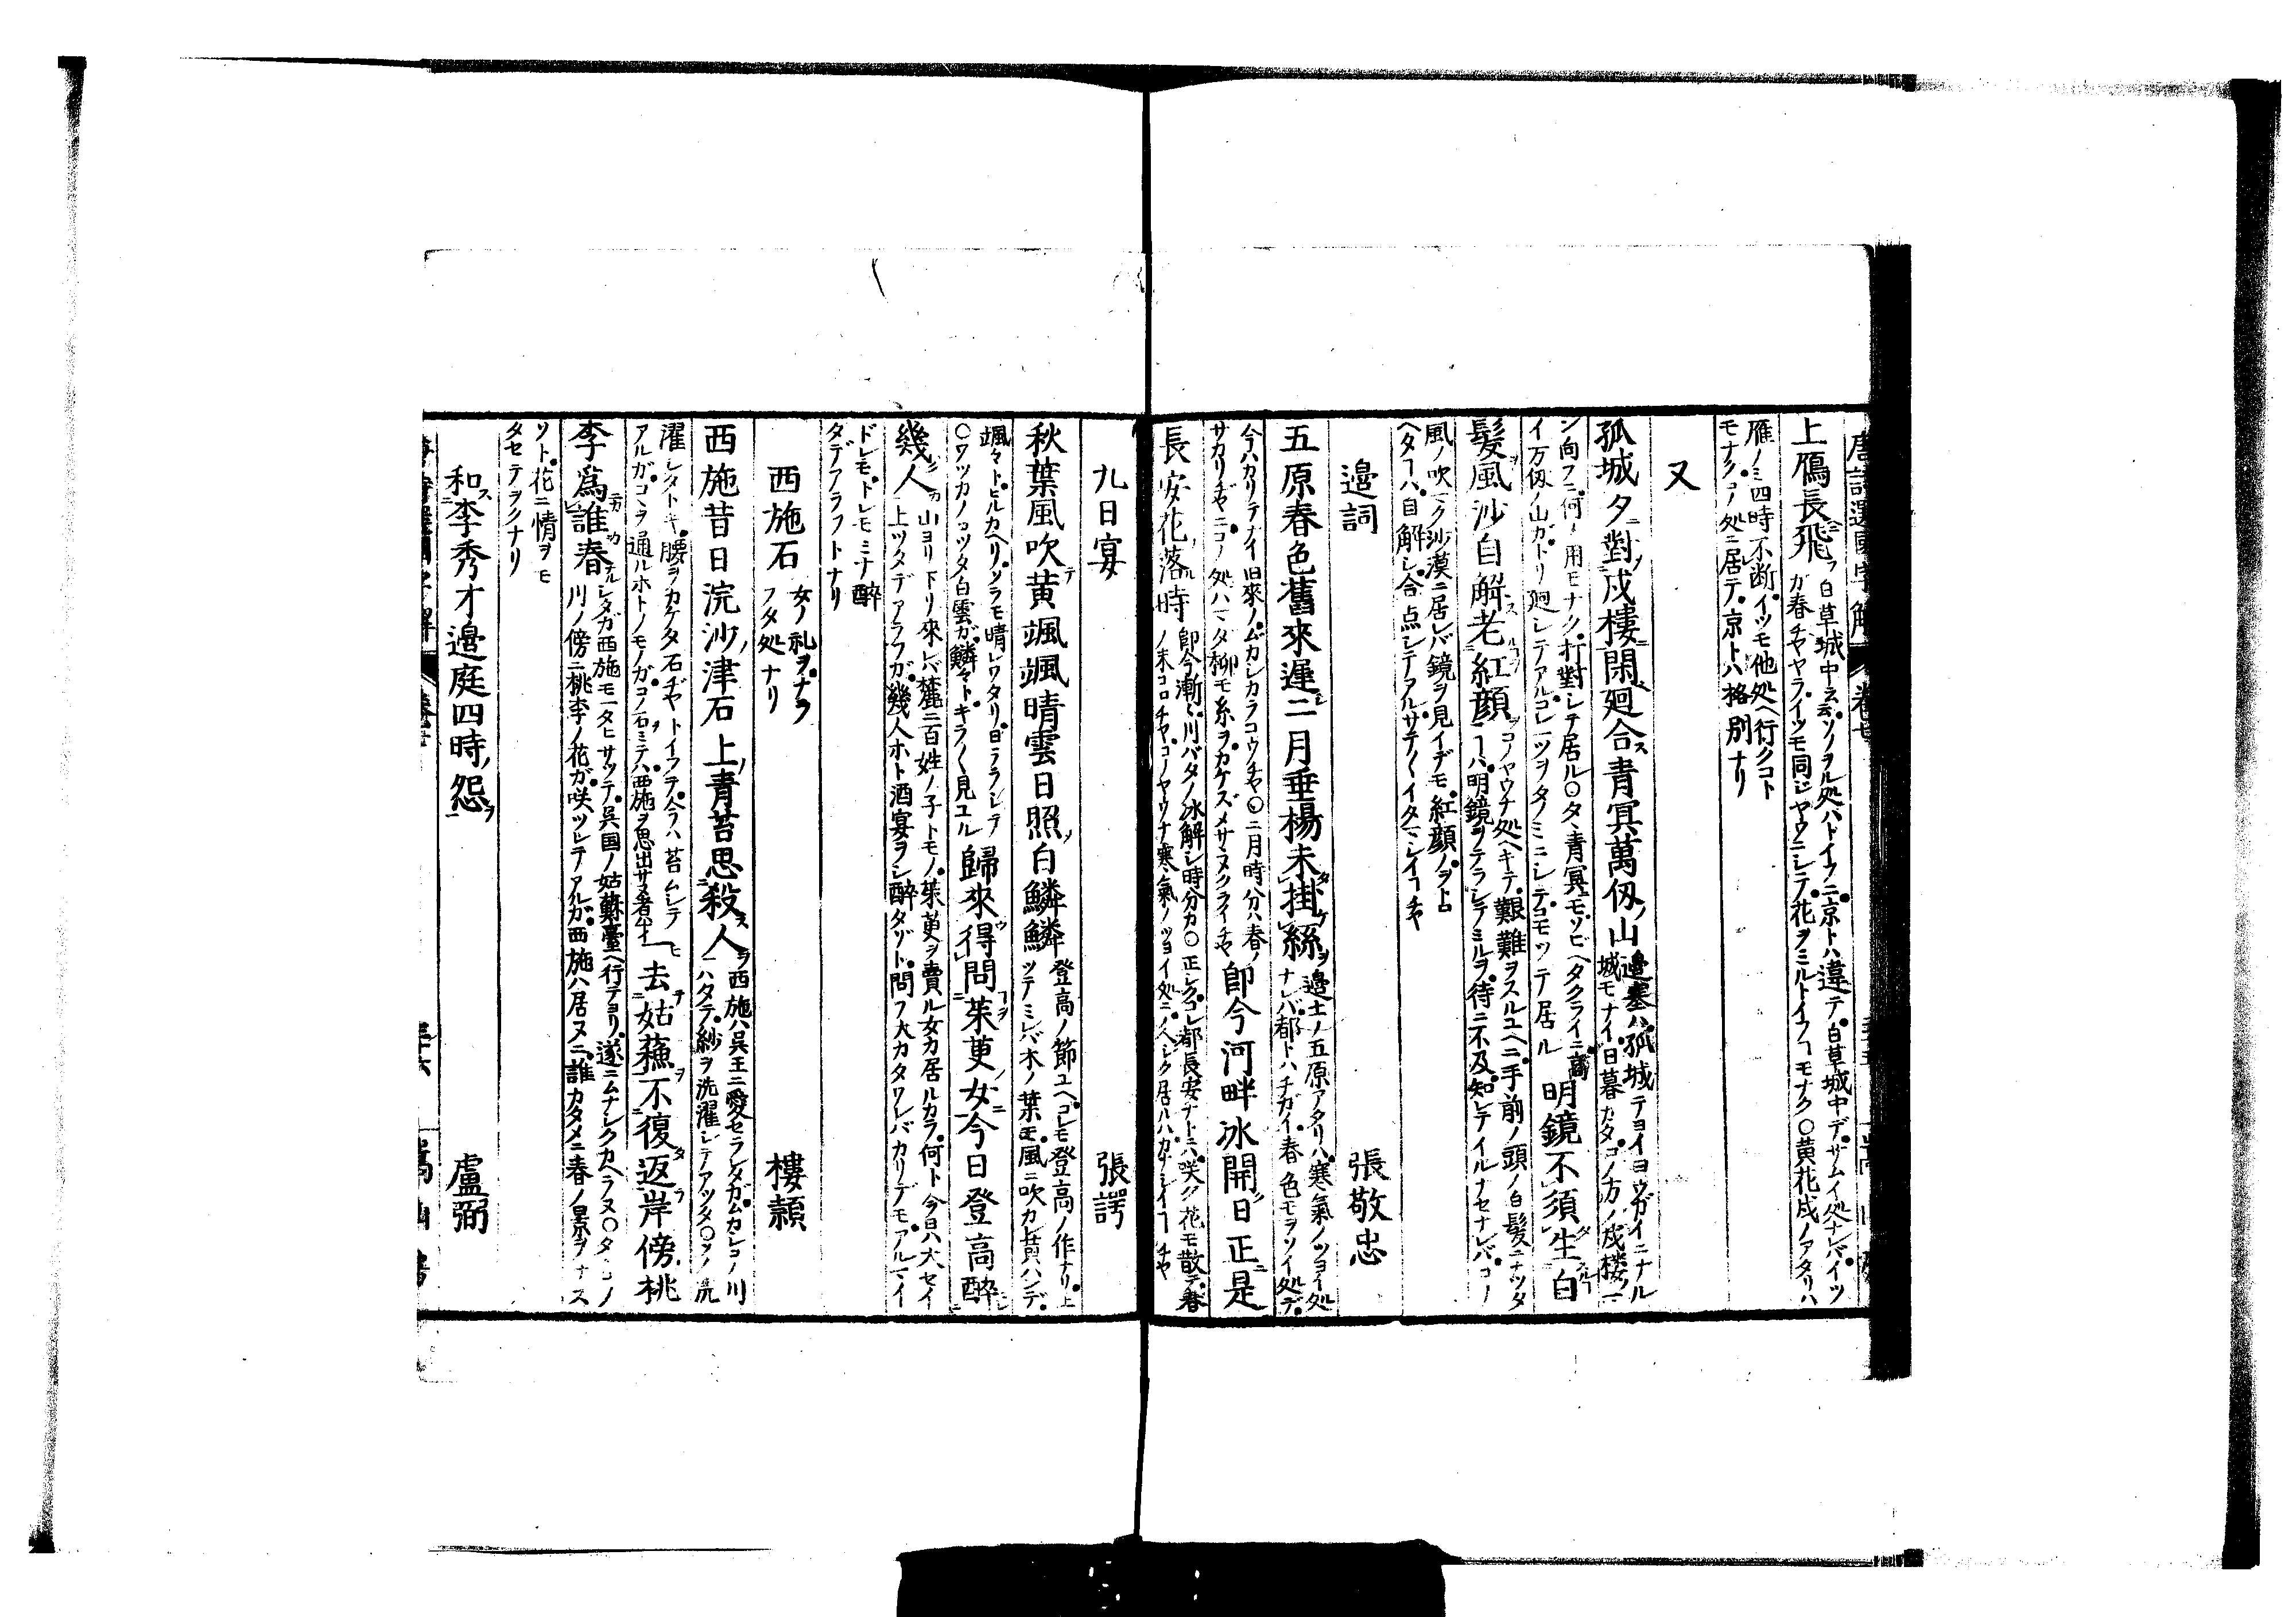 唐詩選國字解 卷七
上鴈長飛 白草城中云云ソノヲル処ハドイフニ京トハ違テ白草城中デサムイ処ナレバイツ
ガ春チヤヤライツモ同ジヤウニシテ花ヲミルトイフコモナク○黄花戍ノアタリハ
雁ノミ四時不断イツモ他処ヘ行クコト
モナクコノ処ニ居テ京トハ格別ナリ
又
孤城夕對戍樓閑廻合青冥萬仭山 邉塞ハ孤城テヨイヨウガイニナル
城モナイ日暮カタコノ方ノ戍楼ニ
シ向フニ何ノ用モナク打對シテ居ル○タヽ青冥ニモソビヘタクライニ高
イ万仭ノ山ガトリ廻シテアルコレ一ツヲタノミニシテコモツテ居ル
明鏡不須生白
髮風沙自解老紅顔 コノヤウナ処ヘキテ艱難ヲスルユヘニ手前ノ頭ノ白髮ニナツタ
コハ明鏡ヲテラシテミルヲ待ニ不及知レテイルナセナレバコノ
風ノ吹マク沙漠ニ居レバ鏡ヲ見イデモ紅顔ノヲトロ
ヘタコハ自解シ合点シテアルサテ〱イタマシイコチヤ
邉詞 張敬忠
五原春色舊來遲二月垂楊未掛絲 邉土ノ五原アタリハ寒氣ノツヨイ処
ナレバ都トハチガイ春色モヲソイ処デ
今ハカリテナイ旧來ノムカシカラコウチヤ○二月時分ハ春ノ
サカリヂヤニコノ処ハマタ柳モ糸ヲカケズメサヌクライチヤ
即今河畔冰開日正是
長安花落時 即今漸々川バタノ冰解シ時分カ○正シクコレ都長安ナトニハ咲ク花モ散テ春
ノ末コロチヤコノヤウナ寒氣ノツヨイ処ニ久シク居ルハカナシイコチヤ
九日宴 張諤
秋葉風吹黄颯颯晴雲日照白鱗鱗 登高ノ節ユヘコレモ登高ノ作ナリ上
ツテミレバ木ノ葉モ風ニ吹カレ黄ハンデ
颯々トヒルカヘリソラモ晴レワタリ日ヲラシテ
○ワツカノコツタ白雲ガ鱗々トキラ〱見ユル
歸來得問茱萸女今日登高醉
幾人 山ヨリ下リ來レバ麓ニ百姓ノ子トモノ茱萸ヲ賣ル女カ居ルカラ何ト今日ハ大セイ
上ツタデアラフガ幾人ホト酒宴ヲシ醉タゾト問フ大カタワレバカリデモアルマイ
ドレモドレモミナ醉
タデアラフトナリ
西施石 女ノ礼ヲナラ
フタ処ナリ 樓頴
西施昔日浣沙津石上青苔思殺人 西施ハ呉王ニ愛セラレタガムカシコノ川
ハタテ紗ヲ洗濯シテアツタ○ソノ洗
濯シタトキ腰ヲカケタ石ヂヤトイフテ今ハ苔ムシテ
アルガコヽヲ通ルホトノモノガコノ石ミテハ西施ヲ思出サヌ者ナイ
一去姑蘓不復返岸傍桃
李爲誰春 シタガ西施モ一タヒサツテ呉国ノ姑蘇臺ヘ行テヨリ遂ニムナシクカヘラヌ○タヽコノ
川ノ傍ニ桃李ノ花ガ咲ツレテアルガ西施ハ居ヌニ誰カタメニ春ノ景ヲナス
ソト花ニ情ヲモ
タセテヲクナリ
和李秀才邉庭四時怨 盧弼